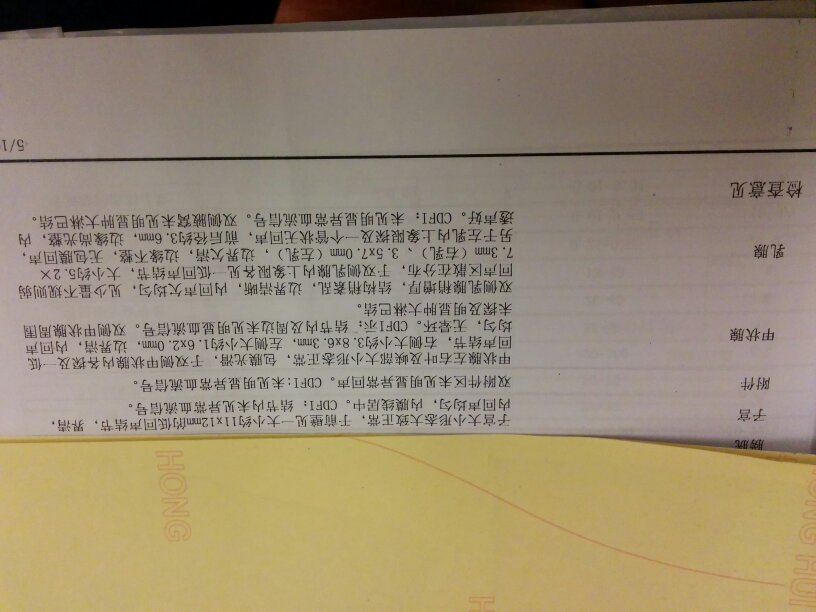 HONG HUI
HONG
H
膀胱
子宫 子宫大小形态大致正常，于前壁见一大小约11x12mm的低回声结节，界清，
内回声均匀，内膜线居中。CDFI：结节内未见异常血流信号。
附件 双附件区未见明显异常回声。CDFI：未见明显异常血流信号。
甲状腺 甲状腺左右叶及峡部大小形态正常，包膜光滑，于双侧甲状腺内各探及一低
回声结节，右侧大小约3.8x6.3mm，左侧大小约1.6x2.0mm，边界清，内回声
均匀，无晕环。CDFI示：结节内及周边未见明显血流信号。双侧甲状腺周围
未探及明显肿大淋巴结。
乳腺 双侧乳腺稍增厚，结构稍紊乱，边界清晰，内回声欠均匀，见少量不规则弱
回声区散在分布，于双侧乳腺内上象限各见一低回声结节，大小约5.2×
7.3mm（右乳）、3.5x7.0mm（左乳），边界欠清，边缘不整，无包膜回声，
另于左乳内上象限探及一个管状无回声，前后径约3.6mm，边缘尚光整，内
透声好。CDFI：未见明显异常血流信号。双侧腋窝未见明显肿大淋巴结。
检查意见
5/1